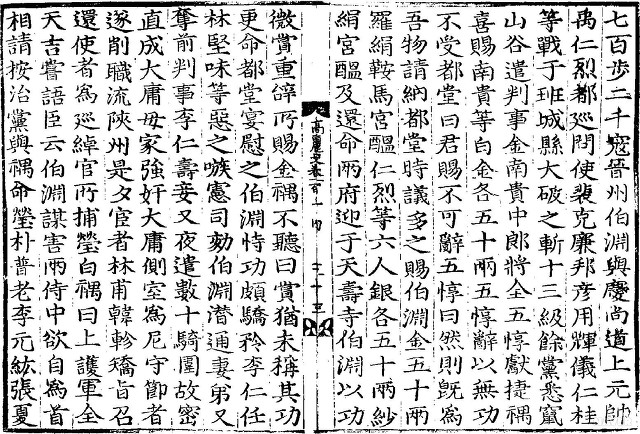 七百歩二千寇晉州伯淵與慶尚道上元帥
禹仁烈都巡問使裴克廉邦彦用輝儀仁桂
等戰于班城縣大破之斬十三級餘黨悉竄
山谷遣判事金南貴中郎將全五惇獻捷禑
喜賜南貴等白金各五十兩五惇辭以無功
不受都堂曰君賜不可辭五惇曰然則旣為
吾物請納都堂時議多之賜伯淵金五十兩
羅絹鞍馬宮醞仁烈等六人銀各五十兩紗
絹宮醞及還命兩府迎于天壽寺伯淵以功
高麗史卷百十四
微賞重辭所賜金禑不聽曰賞猶未稱其功
更命都堂宴慰之伯淵恃功頗驕矜李仁任
林堅味等惡之嗾憲司劾伯淵潛通妻弟又
奪前判事李仁壽妾又夜遣數十騎圍故密
直成大庸母家強奸大庸側室為尼守節者
遂削職流陝州是夕宦者林甫韓軫矯旨召
還使者為巡綽官所捕瑩白禑曰上護軍全
天吉嘗語臣云伯淵謀害兩侍中欲自為首
相請按治黨與禑命瑩朴普老李元紘張夏